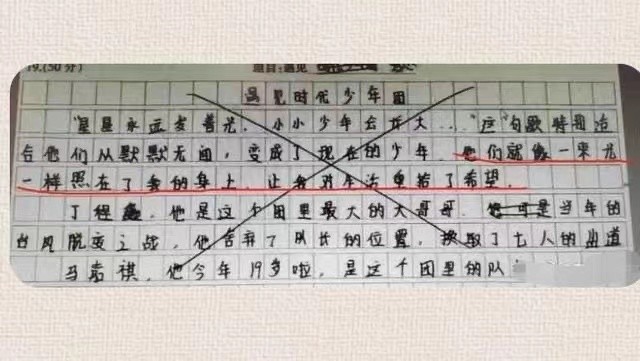 19.(50分) 题目:遇见
遇见时代少年团
“星星永远发着光,小小少年会长大...”这句歌特别适
合他们从默默无闻,变成了现在的少年.他们就像一束光
一样照在了我的身上,让我对生活重拾了希望.
丁程鑫,他是这个团里最大的大哥哥.他可是当年的
台风蜕变之战,他舍弃了队长的位置,换取了七人的出道
马嘉祺,他今年19岁啦,是这个团里的队